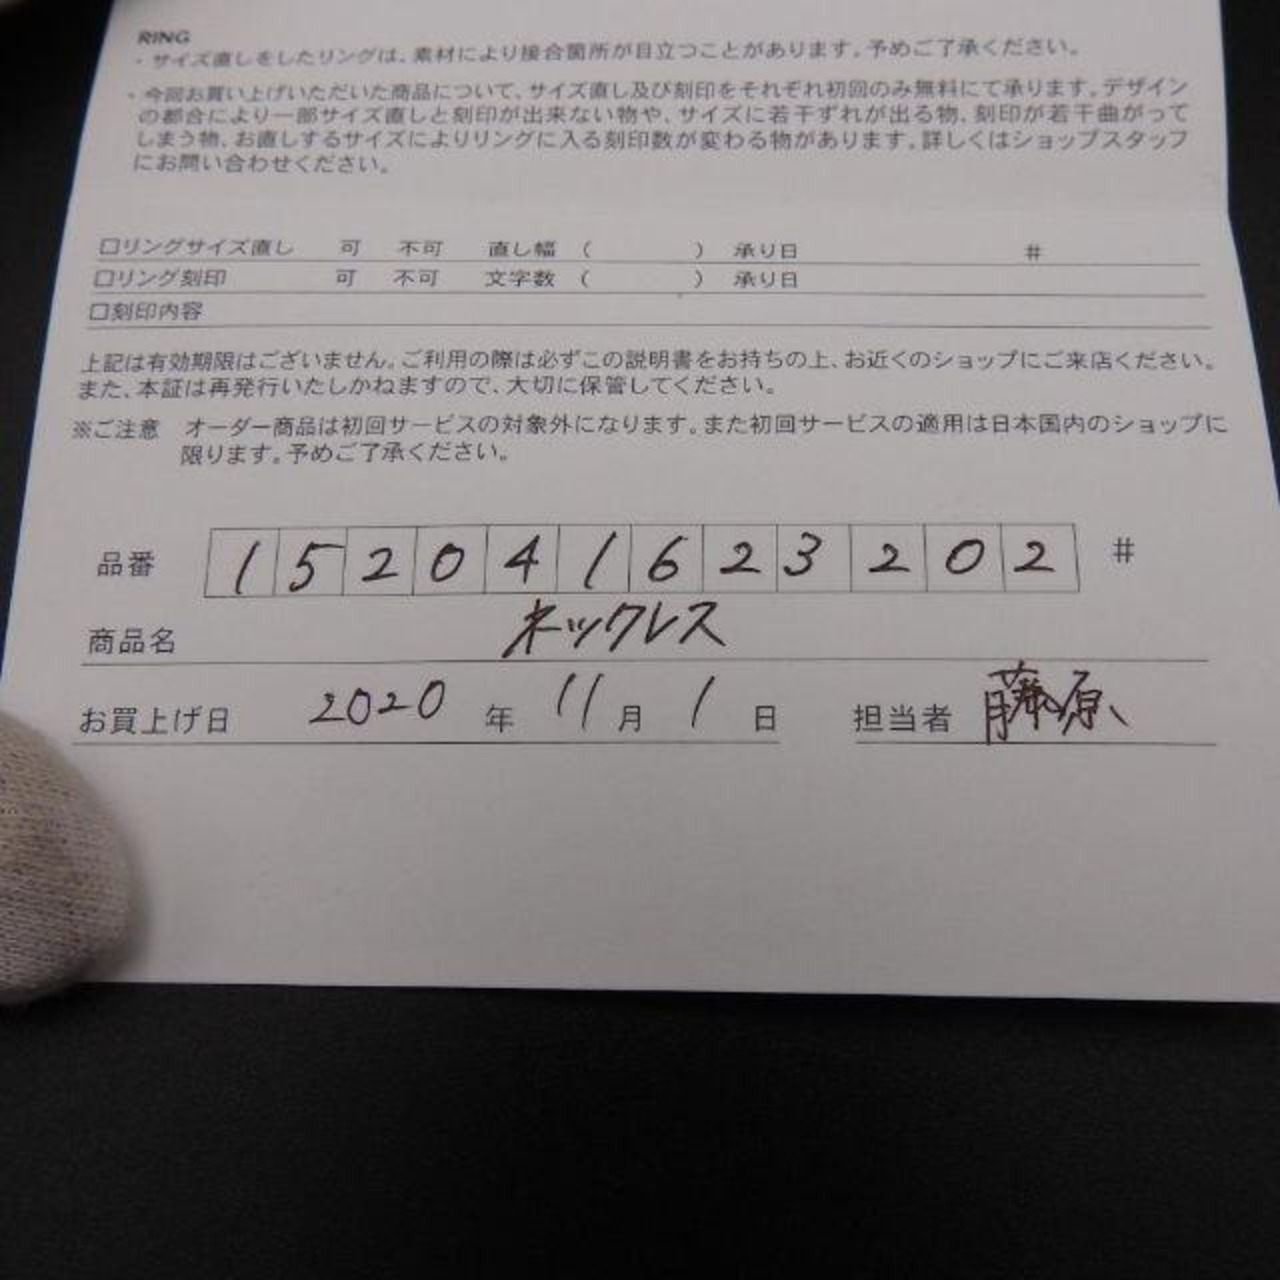 RING
・サイズ直しをしたリングは、素材により接合箇所が目立つことがあります。予めご了承ください。
・今回お買い上げいただいた商品について、サイズ直し及び刻印をそれぞれ初回のみ無料にて承ります。デザイン
の都合により一部サイズ直しと刻印が出来ない物や、サイズに若干ずれが出る物、刻印が若干曲がって
しまう物、お直しするサイズによりリングに入る刻印数が変わる物があります。詳しくはショップスタッフ
にお問い合わせください。
□リングサイズ直し 可 不可 直し幅 ( ) 承り日 #
□リング刻印 可 不可 文字数 ( ) 承り日
□刻印内容
上記は有効期限はございません。ご利用の際は必ずこの説明書をお持ちの上、お近くのショップにご来店ください。
また、本証は再発行いたしかねますので、大切に保管してください。
※ご注意 オーダー商品は初回サービスの対象外になります。また初回サービスの適用は日本国内のショップに
限ります。予めご了承ください。
品番 152041623202 #
商品名 ネックレス
お買上げ日 2020 年 11 月 1 日 担当者 藤原